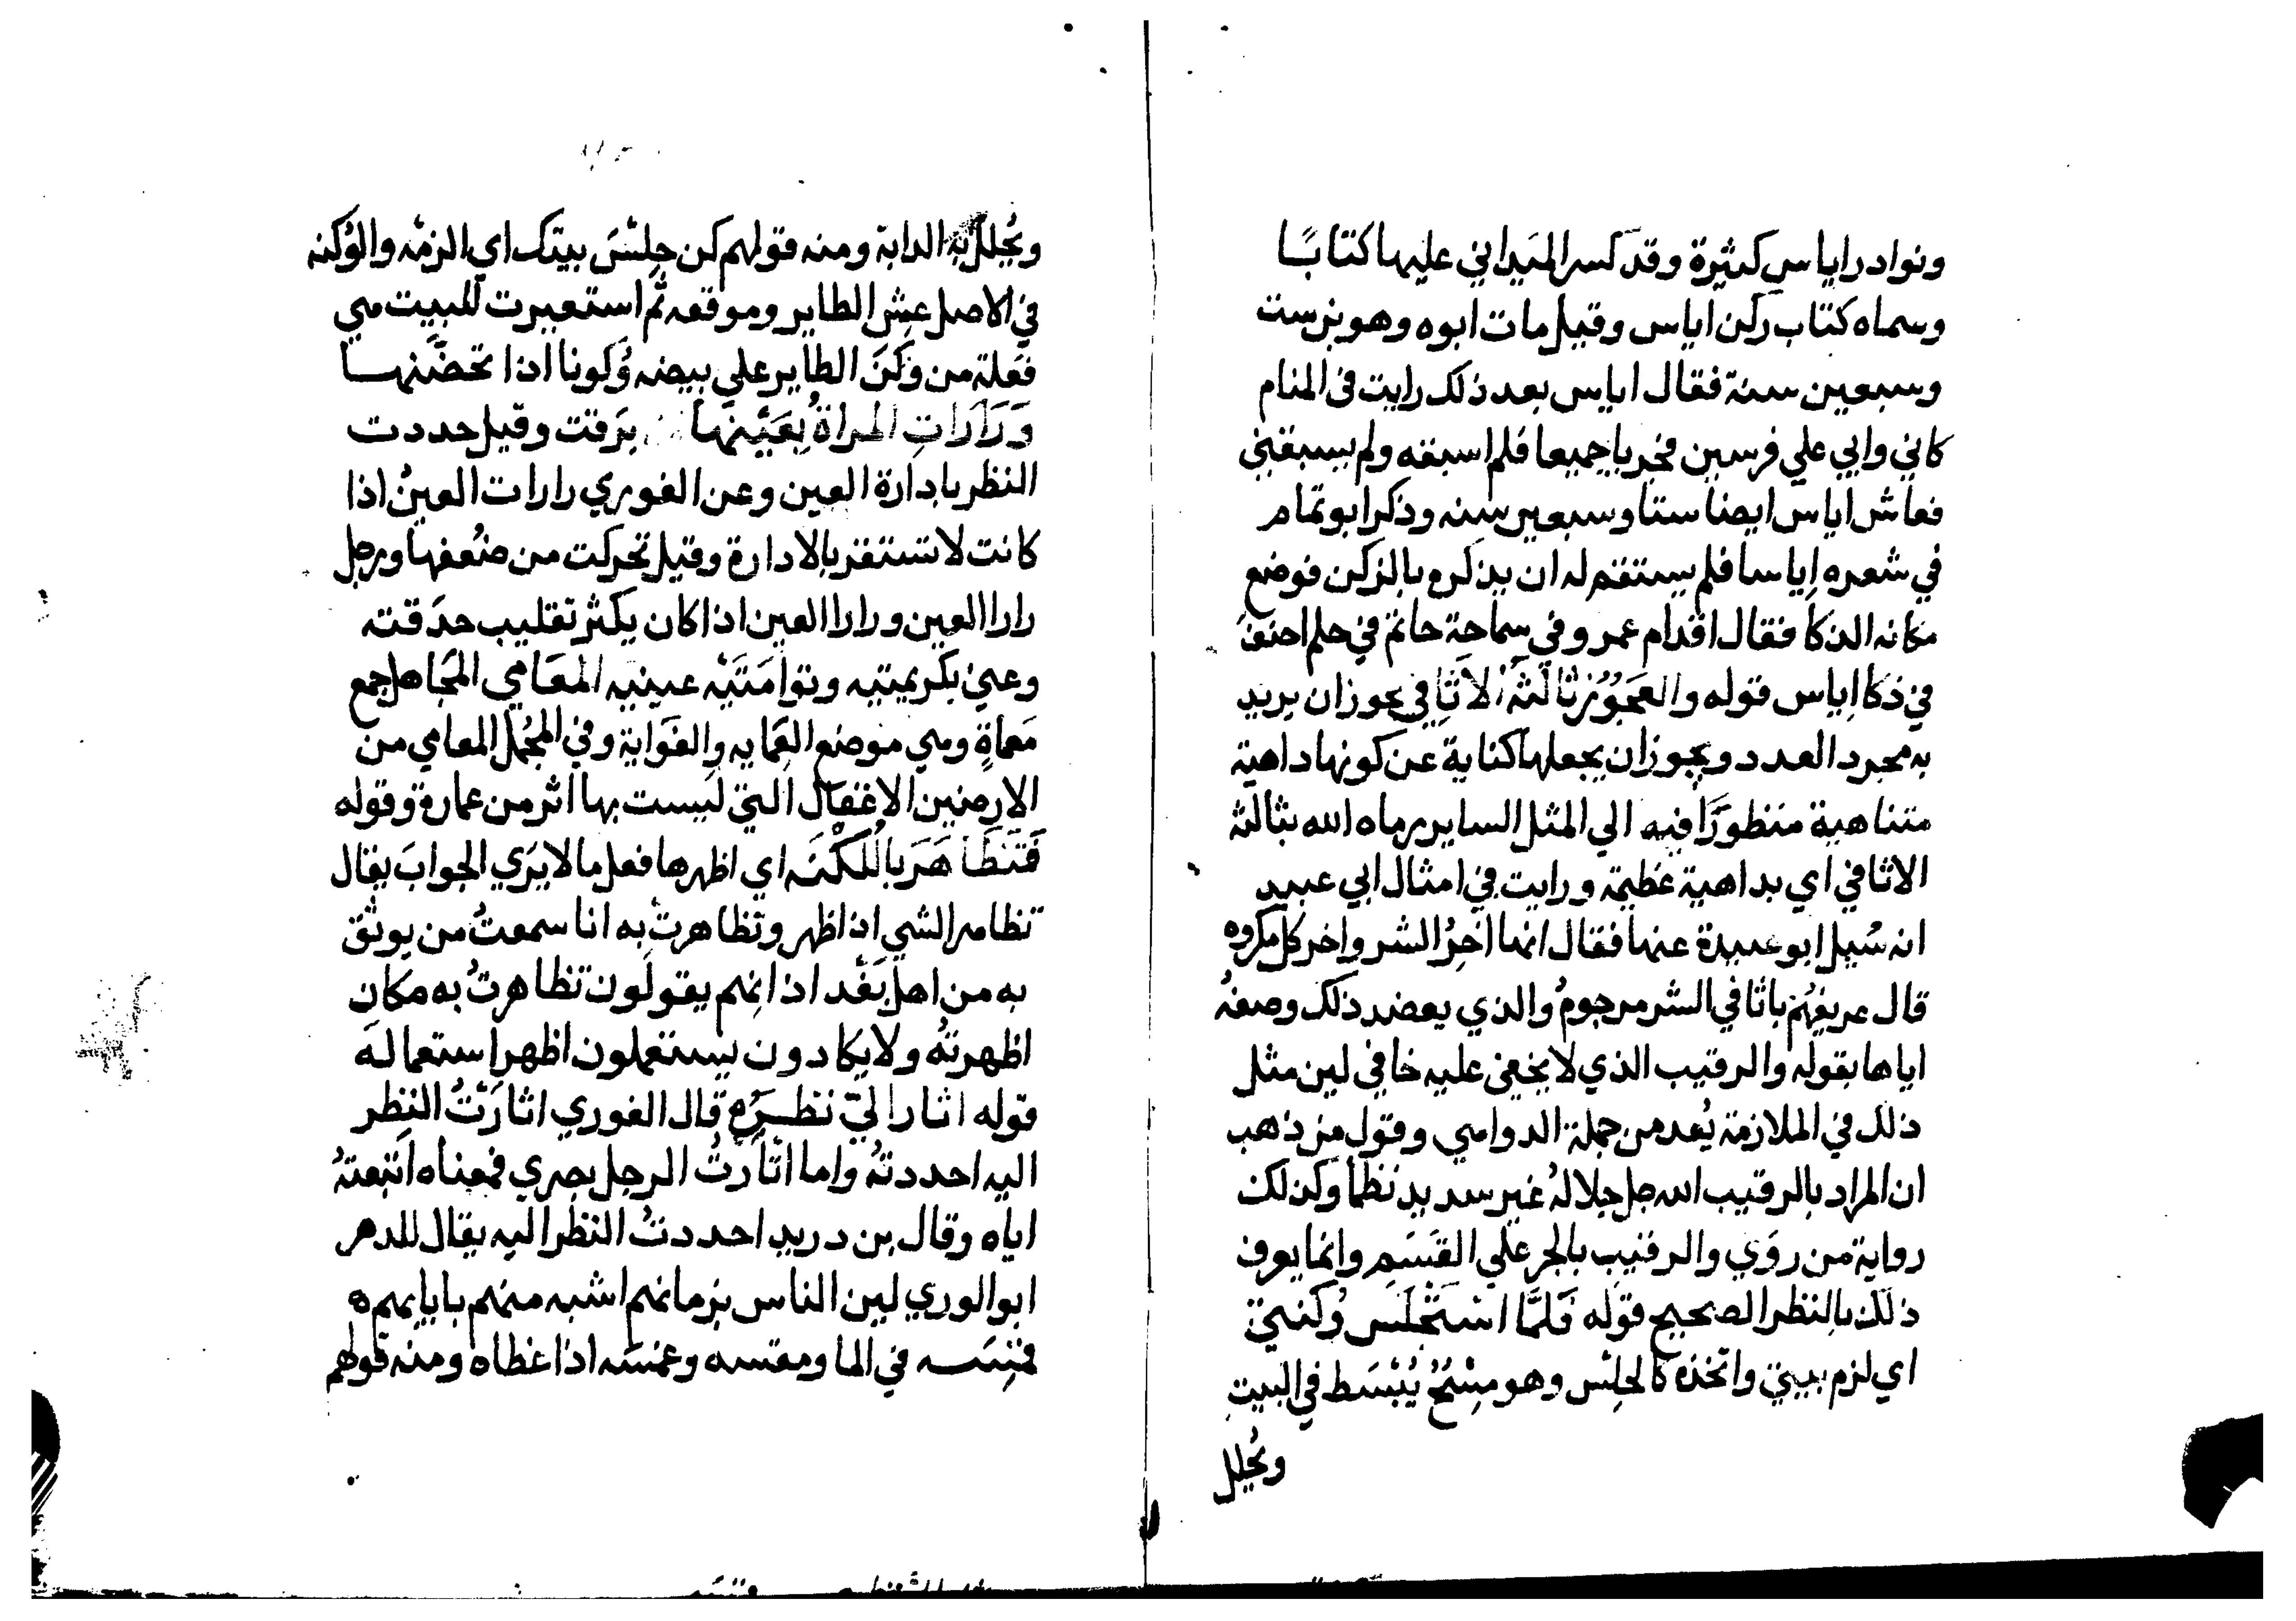 ونوادر اياس كثيرة وقد كسر الميداني عليها كتابًا
وسماه كتاب زكن اياس وقيل مات ابوه وهو بن ست
وسبعين سنة فقال اياس بعد ذلك رايت في المنام
كاني وابي علي فرسين فجريا جميعا فلم اسبقه ولم يسبقني
فعاش اياس ايضا ستا وسبعين سنه وذكر ابو تمام
في شعره إياسا فلم يستقم له ان يذكره بالزكن فوضع
مكانه الذكا فقال اقدام عمرو في سماحة حاتم في حلم احنف
في ذكا اياس قوله والعجوز ثالثة الاثافي يجوز ان يريد
به مجرد العدد ويجوز ان يجعلها كناية عن كونها داهية
متناهية منظورًا فيه الي المثل الساير رماه الله بثالثة
الاثافي اي بداهية عظيمة ورايت في امثال ابي عبيد
انه سُيل ابو عبيدة عنها فقال انها اخِرُ الشر واخر كل مكروه
قال عريفهُم باثافي الشر مرجومُ والذي يعضد ذلك وصفهُ
اياها بقوله والرقيب الذي لا يخفي عليه خافي لين مثل
ذلك في الملازمة يُعد من جملة الدواهي وقول من ذهب
ان المراد بالرقيب الله جل جلالهُ غير سديد نظما وكذلك
رواية من روَي والرقيب بالجر علي القَسَمِ وانما يعرف
ذلك بالنظر الصحيح قوله فَلمَّا استَحْلَس وُكنتي
اي لزم بيتي واتخذه كالحِلْس وهو مِسْحٌ يُبْسَط في البيتِ
ويُجلل
ويُجلل به الدابة ومنه قولهم كن حِلْسَ بيتك اي الزمْه والوُكنه
في الاصل عش الطاير وموقعه ثم استعيرت للبيت هي
فُعلة من وَكَنَ الطاير علي بيضه وُكونا اذا تحضّنها
وَرَارَاتِ المراةُ بِعَيْنها برَقت وقيل حددت
النظر بادارة العين وعن الغوري رارات العينُ اذا
كانت لا تستقر بالادارة وقيل تحركت من ضُعفها ورجل
رارا العين ورارا العين اذا كان يكثر تقليب حدَقته
وعني بكريمتيه وتوامَتَيْه عينيه المعَامي المجَاهل جمع
مَعماةٍ وهي موضع العَمايه والغَواية وفي المجُمل المعامي من
الارضين الاغفال التي ليست بها اثر من عمارة وقوله
فَتَظَاهَرَ باللُكْنَه اي اظهرها فعل ما لا يَرَي الجوابَ يقال
تظاهر الشي اذا ظهر وتظاهرتُ به انا سمعتُ من يوثق
به من اهل بَغْداد انهم يقولون تظاهرتُ به مكان
اظهرتُه ولا يكادون يستعملون اظهر استعماله
قوله اثار اليّ نظَرَه قال الغوري اثارَتُ النظر
اليه احددتهُ واما اَثْاَرْتُ الرجل بصري فمعناه اتبعتهُ
اياه وقال بن دريد احددتُ النظر اليه يقال للدهر
ابو الوري لين الناس بزمانهم اشبه منهم بابايهم ه
في الما ومقسه وغمسه اذا غطاه ومنه قولهم